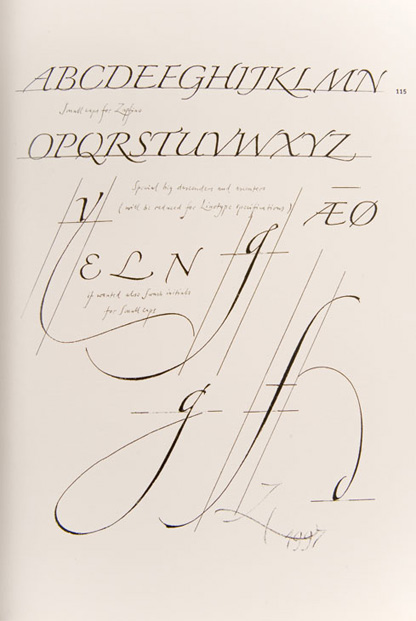 ABCDEFGHIJKLMN
115
Small caps for Zapfino
OPQRSTUVWXYZ
Special big descenders and number
(will be reduced for Linotype specifications)
y
g
ÆØ
ELN
if wanted also Swash initials
for Small caps
g
fh
Z 1997